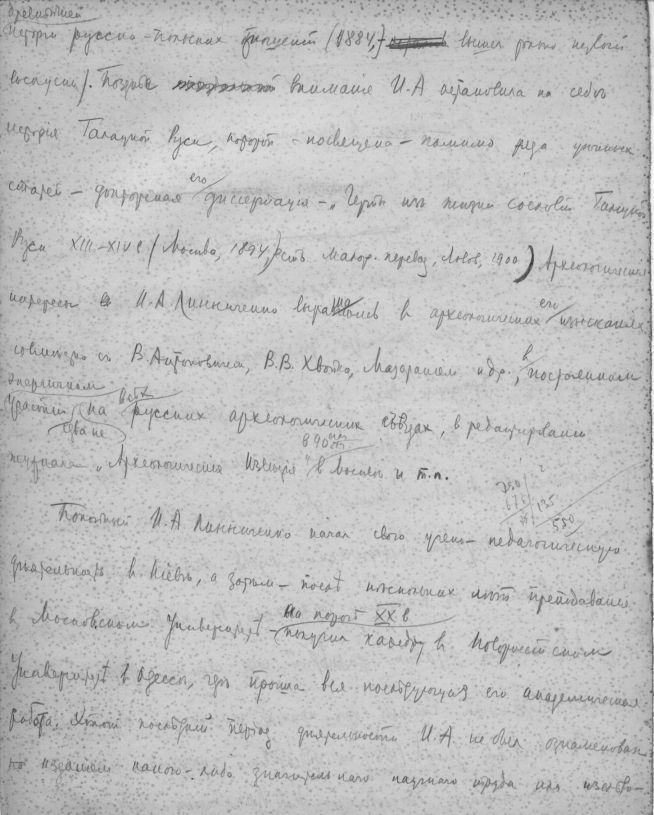 древнейшей
Истории русско-польских отношений (1884,) вышел только первый
выпуск). Позднѣе вниманіе И.А остановила на себѣ
исторія Галицкой Руси, которой - посвящена - помимо ряда
статей - докторская его диссертація - „Черты изъ жизни сословій Галицкой
Руси XIII-XIV в (Москва, 1894, есть малор. перевод, Львов, 1900) Археологические
интересы И.А Линниченко в археологических его изысканиях
совместно съ В. Антоновичем, В.В. Хвойко, и др., в постоянном
энергичном
участии на всѣх русских археологических съѣздах, в редактировании
едва не
журнала „Археологическия Извѣстія" в Москвѣ и т.п.
750
675 135
580
Покойный И.А Линниченко начал свою учено-педагогическую
дѣятельность в Кіевѣ, а затѣм - послѣ нескольких лѣтъ преподавания
в Московском Университетѣ - на порогѣ XX в
получил кафедру в Новороссийском
Университетѣ в Одессѣ, гдѣ прошла вся послѣдующая его академическая
работа. Хотя послѣдній период дѣятельности И.А. не был ознаменован
изданием какого-либо значительнаго научнаго труда или